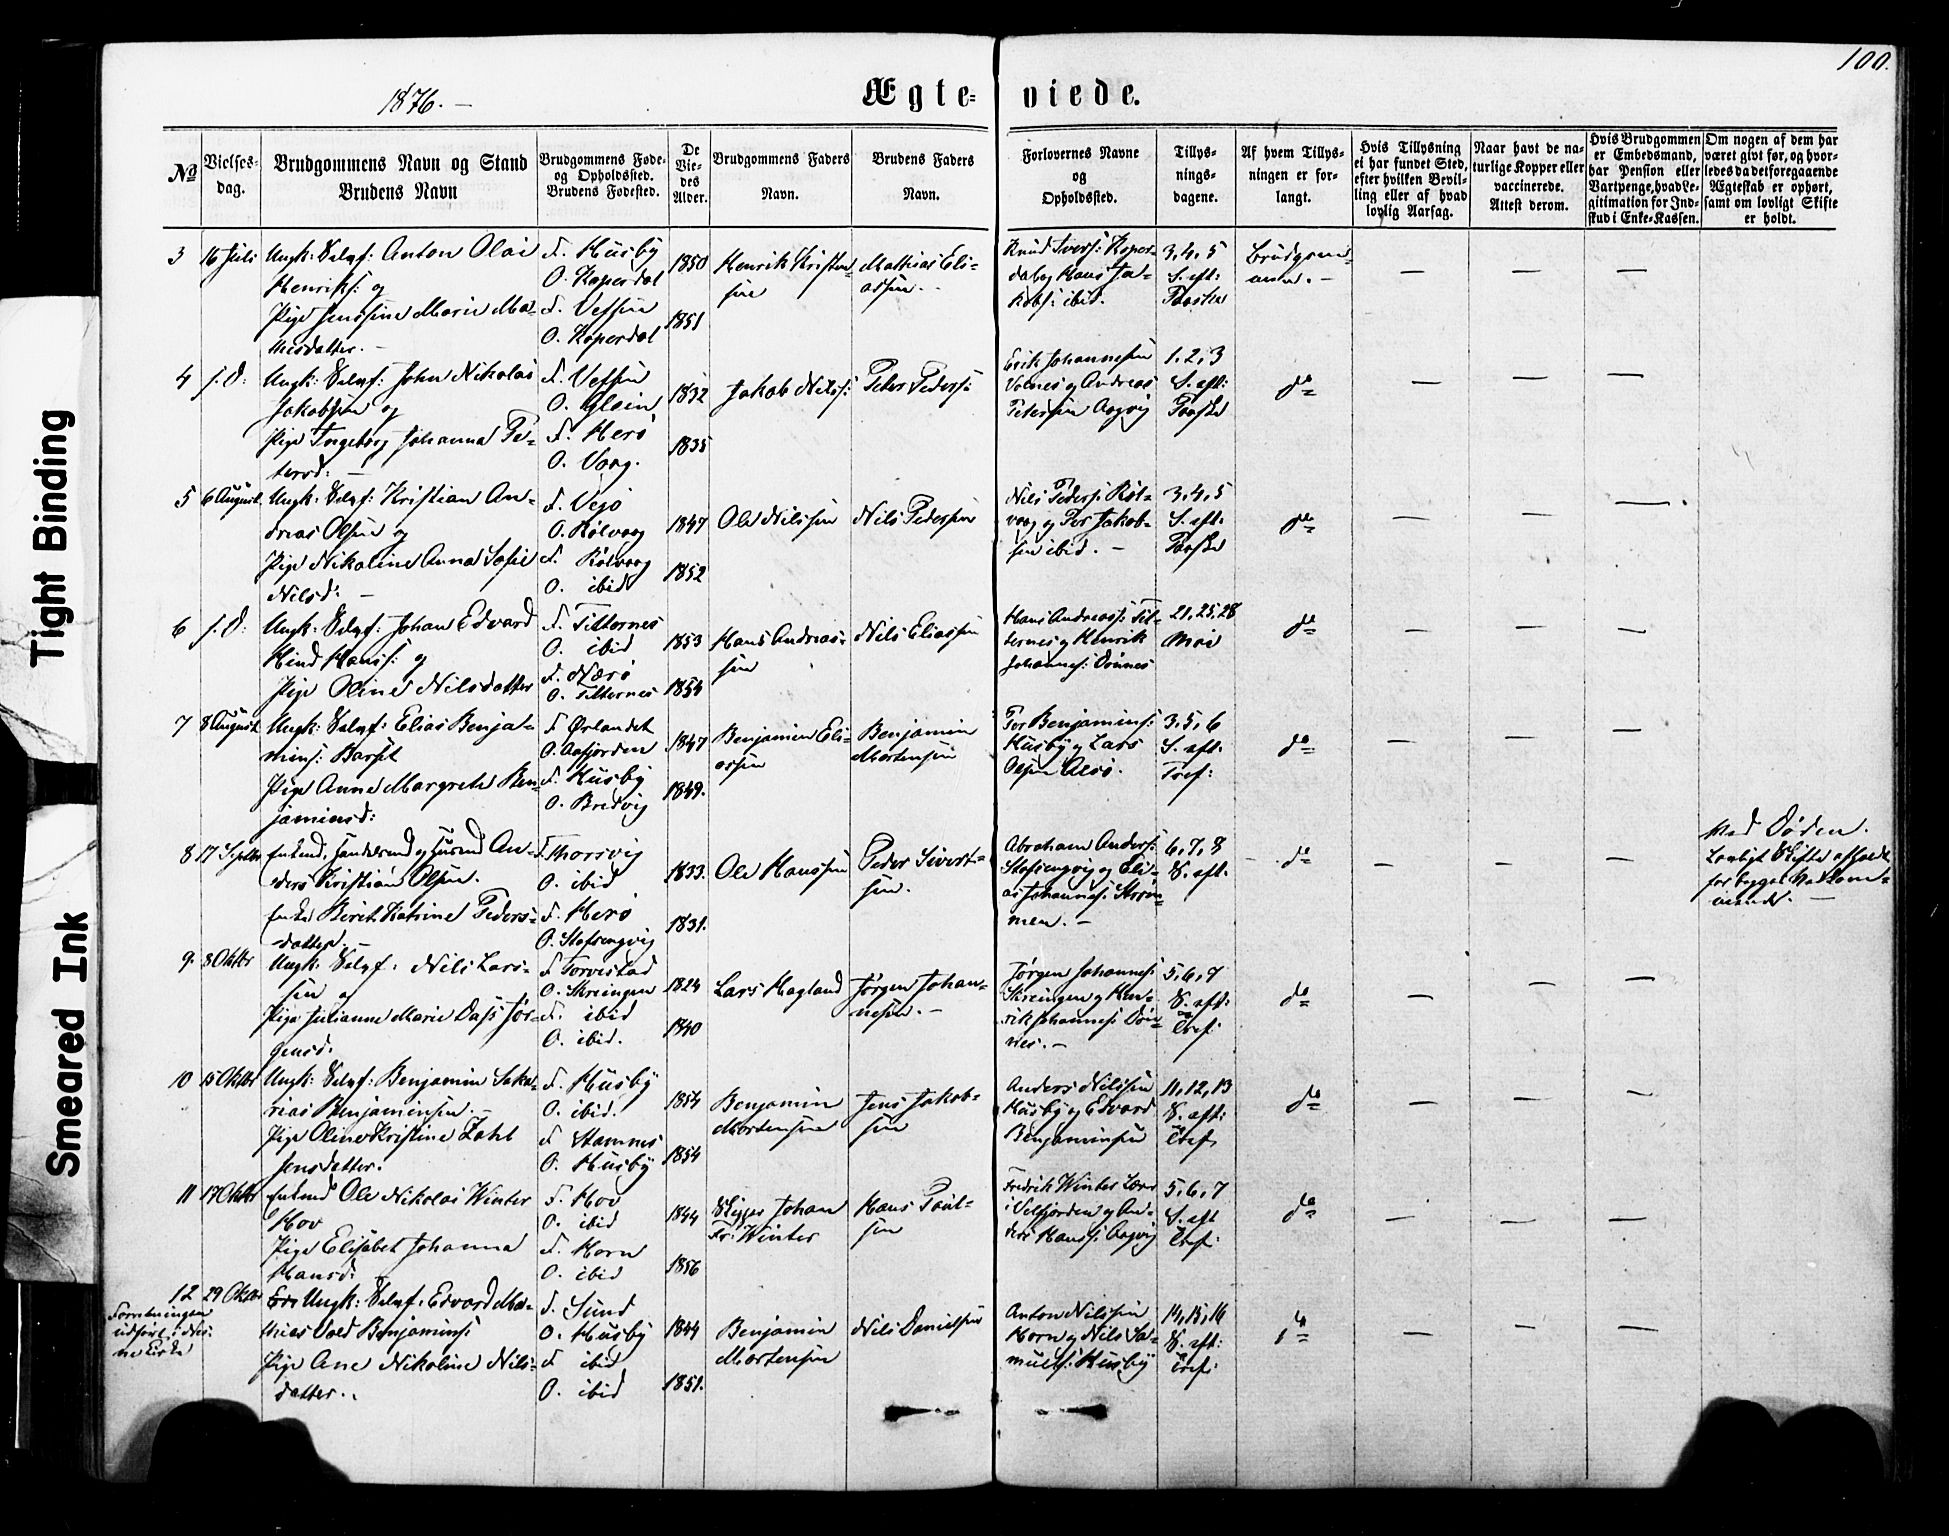 100.
1876. —
Ægte= viede.
№
Vielses-
dag.
Brudgommens Navn og Stand
Brudens Navn
Brudgommens Føde-
og Opholdssted.
Brudens Fødested.
De
Vie-
des
Alder.
Brudgommens Faders
Navn.
Brudens Faders
Navn.
Forlovernes Navne
og
Opholdssted.
Tillys-
nings-
dagene.
Af hvem Tillys-
ningen er for-
langt.
Hvis Tillysning
ei har fundet Sted,
efter hvilken Bevil-
ling eller af hvad
lovlig Aarsag.
Naar havt de na-
turlige Kopper eller
vaccinerede.
Attest derom.
Hvis Brudgommen
er Embedsmand,
har Pension eller
Vartpenge, hvad Le-
gitimation for Ind-
skud i Enke-Kassen.
Om nogen af dem har
været givt før, og hvor-
ledes da det foregaaende
Ægteskab er ophørt,
samt om lovligt Skifte
er holdt.
3 16 Juli Ungk: Selvf: Anton Olai
Henriks: og
Pige Jenssine Marie Ma-
thisdatter. —
F. Husby
O. Koperdal
F. Vefsen
O. Koperdal
1850
1851
Henrik Kristen-
sen
Mathias Eli-
assen. -
Knud Ivers: Koper-
dal og Hans Ja-
kobs: ibid.
3, 4, 5
S. eft:
Paaske
Brudgom-
men. —
4 s. D: Ungk: Selvf: John Nikolai
Jakobsen og
Pige Ingeborg Johanna Pe-
tersd: —
F. Vefsen
O. Glein
F. Herø
O. Vaag.
1832
1835
Jakob Nilss:
Peter Peders:
Erik Johannesen
Volnes og Andreas
Petersen Aagvig
1, 2, 3
S. eft:
Paaske
do
5 6 August. Ungk: Selvf: Kristian An-
dreas Olsen og
Pige Nikoline Anna Sofie
Nilsd: —
F. Vejø
O. Rølvaag
F. Rølvaag
O. ibid
1847
1852
Ole Nilssen
Nils Pedersen
Nils Peders: Røl-
vaag og Per Jakob-
sen ibid. —
3, 4, 5
S. eft.
Paaske
do
6 s. D: Ungk: Selvf: Johan Edvard
Hind Hanss: og
Pige Oline Nilsdatter
F. Titternes
O. ibid
F. Nærø
O. Titternes
1853
1854
Hans Andreas-
sen
Nils Eliassen
Hans Andreass: Tit-
ternes og Henrik
Johannes: Dønnes
21, 25, 28
Mai
do
7 8 August Ungk: Selvf: Elias Benja-
mins: Barset
Pige Anne Margrete Ben-
jaminsd:
F. Ørlandet
O. Aafjorden
F. Husby
O. Bredvig
1847
1849.
Benjamin Eli-
assen
Benjamin
Mortensen
Per Benjamins:
Husby og Lars
Olsen Alsø.
3, 5, 6
S. eft.
Tref:
do
8 17 Septbr Enkemd, Handelsmd og Husmd An-
ders Kristian Olsen.
Enke Berit Katrine Peders-
datter. —
F. Thorsvig
O. ibid
F. Herø
O. Stafsengvig
1833.
1831.
Ole Hanssen
Peder Sivert-
sen.
Abraham Anders:
Stafsengvig og Eli-
as Johannes: Strøm-
men. —
6, 7, 8
S. eft.
do
Ved Døden.
Lovligt Skifte afholdt
for begges Vedkom-
mende. —
9. 8 Oktbr Ungk: Selvf: Nils Lars-
sen og
Pige Julianne Marie Dass Jør-
gensd:
F. Torvestad
O. Skeingen
F. ibid
O. ibid.
1824
1840
Lars Hagland
Jørgen Johan-
nesen. —
Jørgen Johannes:
Skeingen og Hen-
rik Johannes: Døn-
nes. —
5, 6, 7
S. eft:
Tref:
do
10 15 Oktbr Ungk: Selvf: Benjamin Saka-
rias Benjaminsen. —
Pige Oline Kristine Zahl
Jensdatter.
F. Husby
O. ibid.
F. Stamnes
O. Husby
1854
1854
Benjamin
Mortensen
Jens Jakob-
sen
Anders Nilssen
Husby og Edvard
Benjaminsen
11, 12, 13
S. eft:
Tref.
do
11 17 Oktbr Enkemd Ole Nikolai Winter
Hov
Pige Elisabet Johanna
Hansd:
F. Hov
O. ibid
F. Horn
O. ibid
1844
1856
Skipper Johan
Fr: Winter
Hans Poul-
sen
Fredrik Winter Lærer
i Velfjorden og An-
ders Hans: Aagvig
5, 6, 7
S. eft
Tref:
do
12 29 Oktbr Ungk: Selvf: Edvard Ma-
thias Vold Benjamins:
Pige Ane Nikoline Nils-
datter. -
Forretningen
udført i Nes-
ne Kirke
F. Sund
O. Husby
F. ibid
O. ibid
1844
1851.
Benjamin
Mortensen
Nils Danielsen
Anton Nilssen
Horn og Nils Sa-
muels: Husby
14, 15, 16
S. eft:
Tref:
do
Tight Binding
Smeared Ink